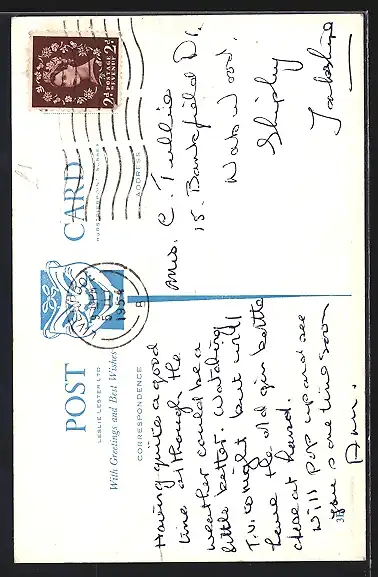 POST CARD
LESLIE LESTER LTD
With Greetings and Best Wishes
CORRESPONDENCE
ADDRESS
Having quite a good
time although the
weather could be a
little better. Watching
T.V. tonight but will
have the old gin bottle
close at hand.
Will pop up and see
you some time soon
Ann.
Mrs. C. Tullie
15. Bankfield Dr.
Nab Wood.
Shipley
Yorkshire
POSTAGE
REVENUE
2d
2d